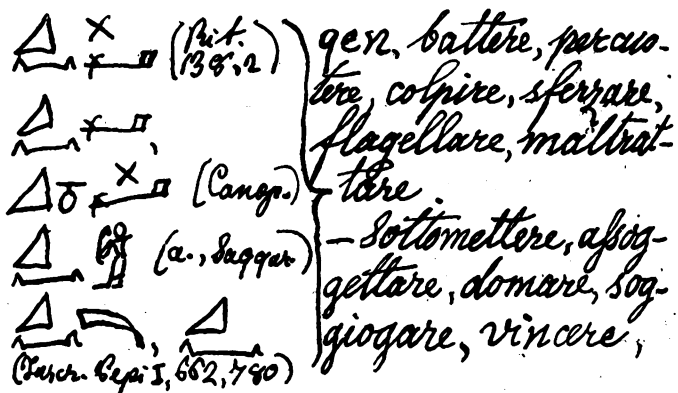 (Rit.
138, 2)
(Canop.)
(a., Saqqar.)
(Inscr. Pepi I, 662, 780)
qen, battere, percuo-
tere, colpire, sferzare,
flagellare, maltrat-
tare.
— Sottomettere, assog-
gettare, domare, sog-
giogare, vincere,